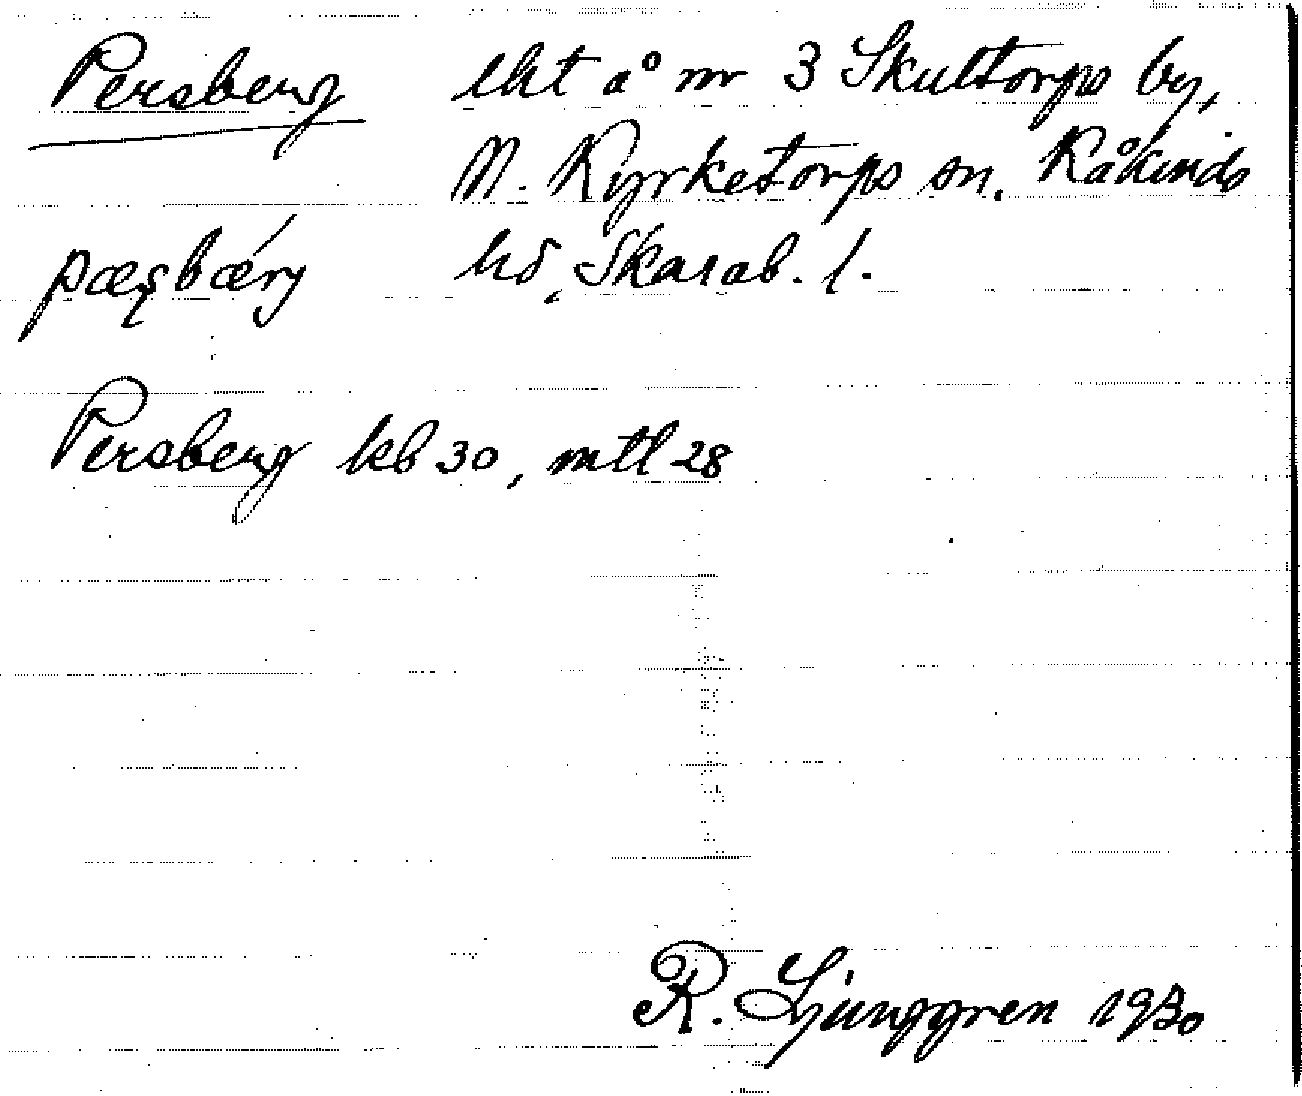 Persberg lht å nr 3 Skultorps by,
N. Kyrketorps sn. Kåkinds
pæşbǽrj hd, Skarab. l.
Persberg kb 30, mtl 28
R. Ljunggren 1930